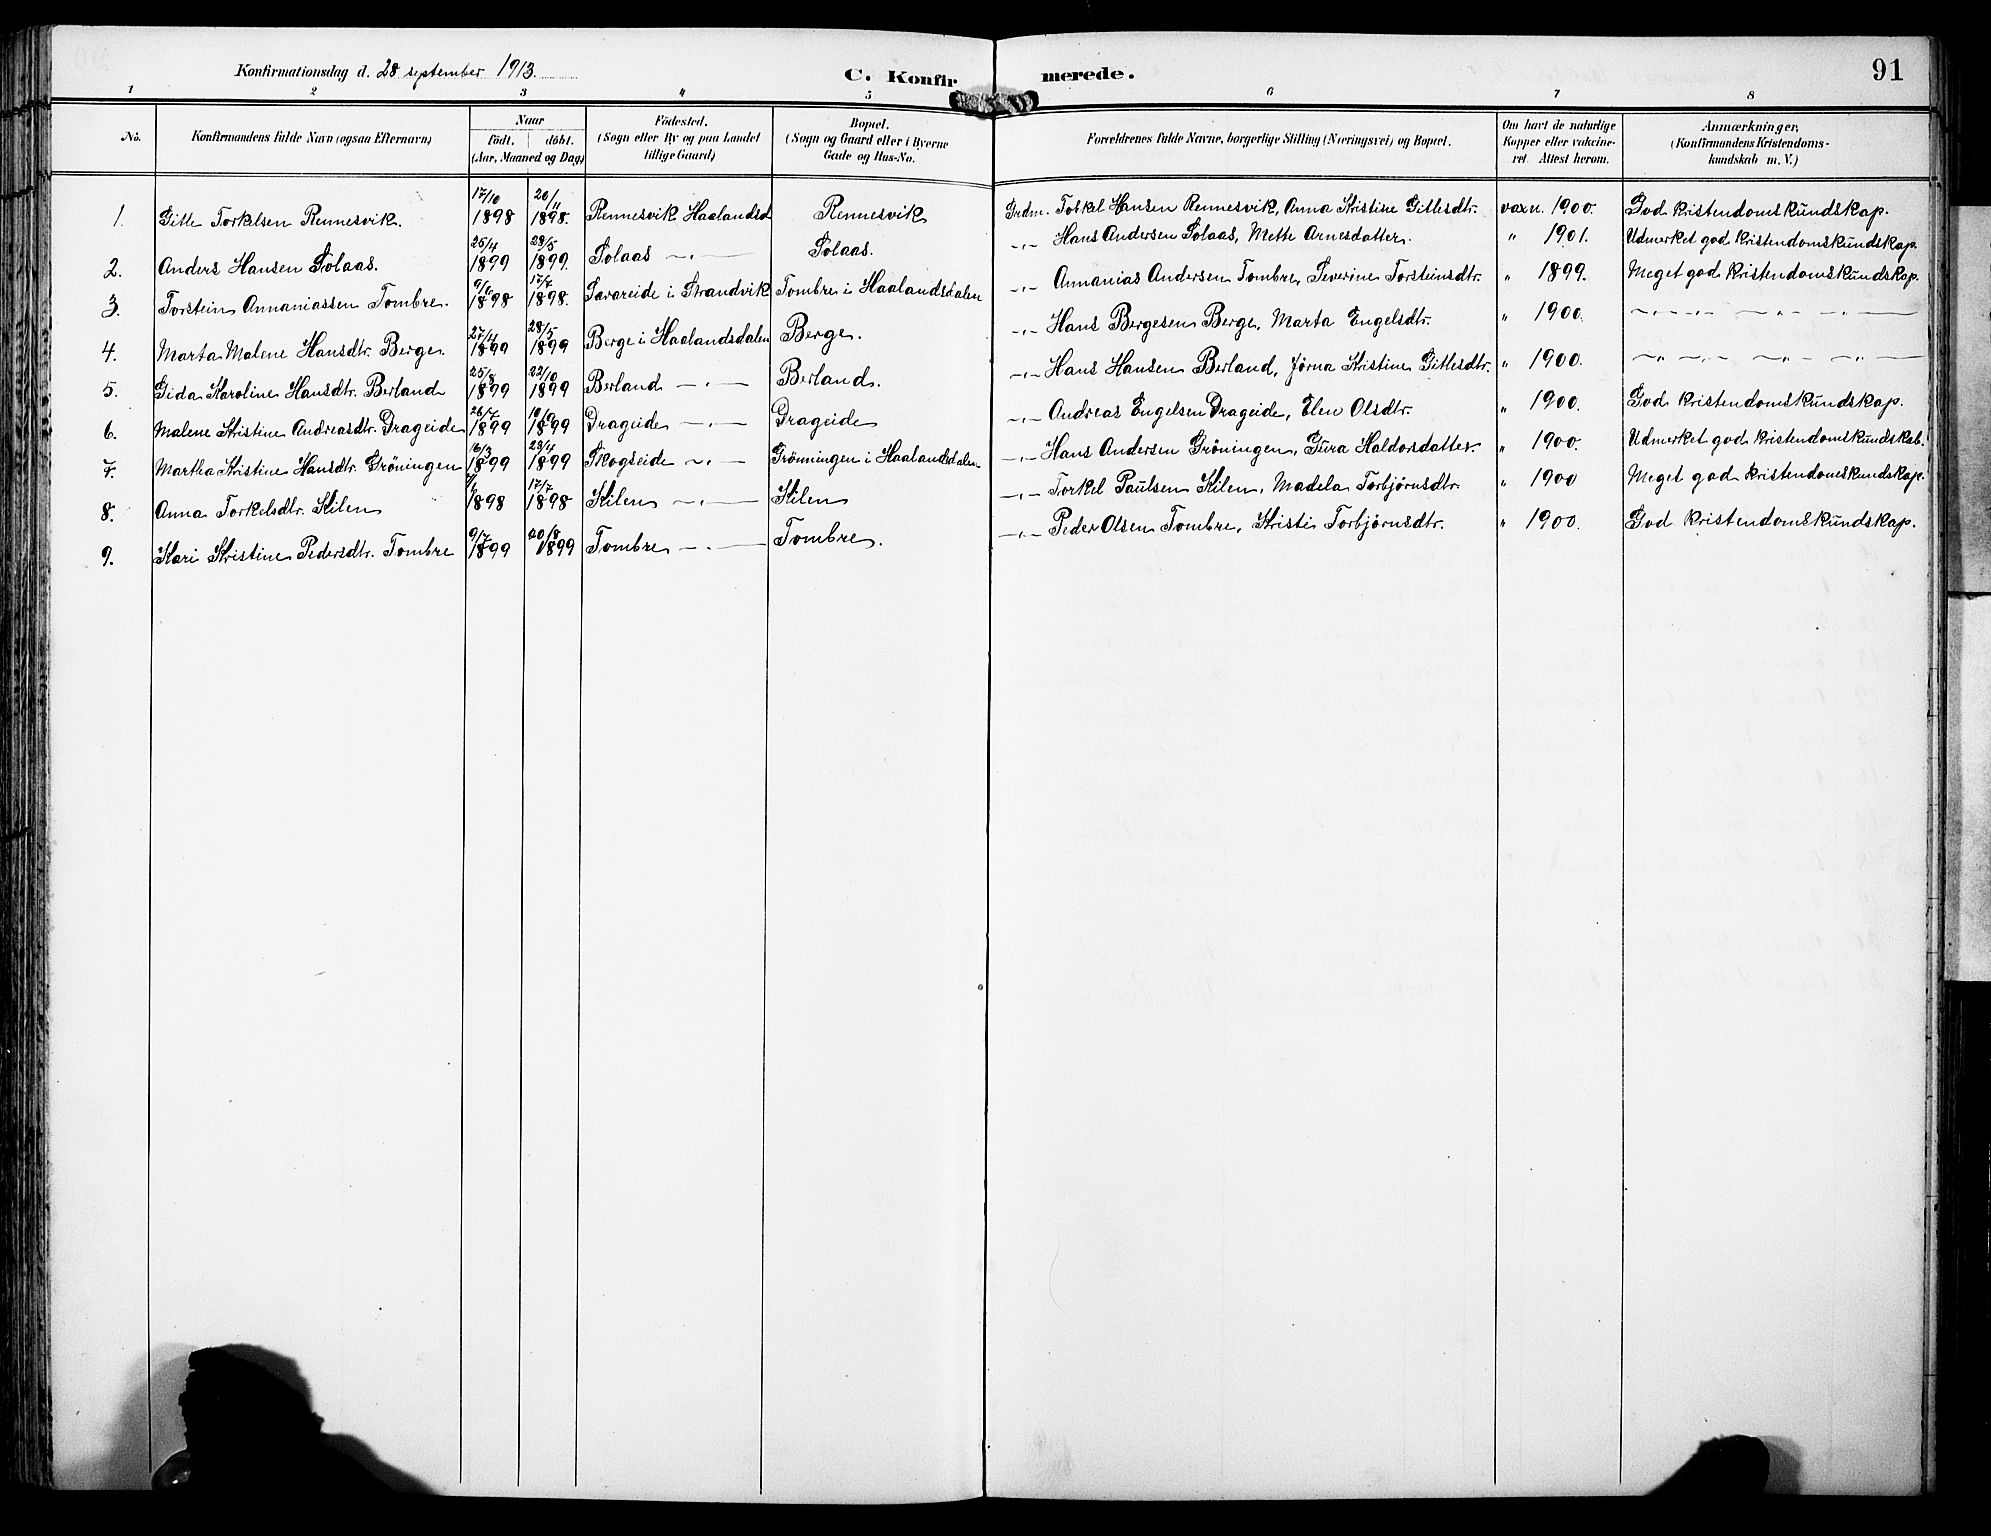 Konfirmationsdag d. 28 september 1913.
C. Konfirmerede.
91
1 2 3 4 5 6 7 8
No.
Konfirmandens fulde Navn (ogsaa Efternavn)
Naar
födt. döbt.
(Aar, Maaned og Dag)
Födested.
(Sogn eller By og paa Landet
tillige Gaard)
Bopæl.
(Sogn og Gaard eller i Byerne
Gade og Hus-No.
Forældrenes fulde Navne, borgerlige Stilling (Næringsvei) og Bopæl.
Om havt de naturlige
Kopper eller vakcine-
ret. Attest herom.
Anmærkninger,
(Konfirmandens Kristendoms-
kundskab m. V.)
1. Gitle Torkelsen Rennesvik. 17/10 1898 20/11 1898. Rennesvik Haalandsd Rennesvik Grdm. Torkel Hansen Rennesvik, Anna Kristine Gitlesdtr. vaxn. 1900. God kristendomskundskap.
2. Anders Hansen Solaas. 25/4 1899 28/5 1899. Solaas —"— Solaas. —"— Hans Andersen Solaas, Mette Arnesdatter. " 1901. Udmerket god kristendomskundskap.
3. Torstein Annaniassen Tombre. 9/6 1898 17/7 1898. Sævareide i Strandvik Tombre i Haalandsdalen —"— Annanias Andersen Tombre, Severine Torsteinsdtr. " 1899. Meget god kristendomskundskap.
4. Marta Malene Hansdtr. Berge. 27/4 1899 28/5 1899 Berge i Haalandsdalen Berge. —"— Hans Bergesen Berge, Marta Engelsdtr. " 1900. —"— —"— —"—
5. Gida Karoline Hansdtr. Berland 25/8 1899 22/10 1899 Berland —"— Berland. —"— Hans Hansen Berland, Jørna Kristine Gitlesdtr. " 1900. —"— —"— —"—
6. Malene Kristine Andreasdtr. Drageide 26/7 1899 10/9 1899 Drageide —"— Drageide —"— Andreas Engelsen Drageide, Elen Olsdtr. " 1900. God kristendomskundskap.
7. Martha Kristine Hansdtr. Gröningen 16/3 1899 23/4 1899 Skogseide —"— Grönningen i Haalandsdalen —"— Hans Andersen Gröningen, Gura Haldorsdatter. " 1900. Udmerket god kristendomskundskab.
8. Anna Torkelsdtr. Kilen 1898 17/7 1898 Kilen —"— Kilen —"— Torkel Paulsen Kilen, Madela Torbjørnsdtr. " 1900 Meget god kristendomskundskap.
9. Kari Kristine Pedersdtr. Tombre 9/7 1899 20/8 1899 Tombre —"— Tombre. —"— Peder Olsen Tombre, Kristi Torbjørnsdtr. " 1900. God kristendomskundskap.